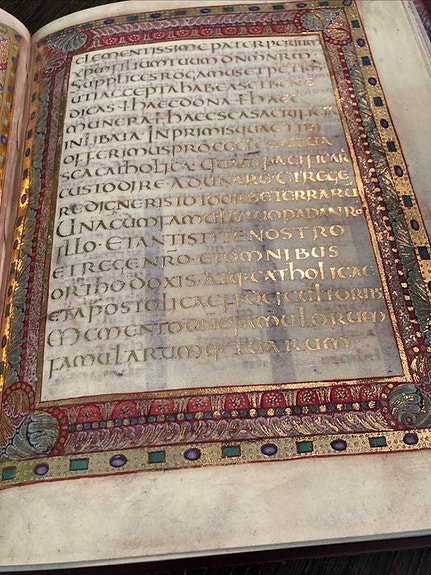 CLEMENTISSIME PATER PER IHM
XPM FILIUM TUUM DNM NRM
SUPPLICES ROGAMUS ET PETIMUS
UTI ACCEPTA HABEAS ET BENE
DICAS HAEC DONA HAEC
MUNERA HAEC SCA SACRIFICIA
INLIBATA INPRIMIS QUAE TIBI
OFFERIMUS PRO ECCLESIA TUA
SCA CATHOLICA QUAM PACIFICARE
CUSTODIRE ADUNARE ET REGE
RE DIGNERIS TOTO ORBE TERRARU
UNA CUM FAMULO TUO PAPA NRO
ILLO ET ANTISTITE NOSTRO
ET REGE NRO ET OMNIBUS
ORTHODOXIS ATQ CATHOLICAE
ET APOSTOLICAE FIDEI CULTORIB
MEMENTO DNE FAMULORUM
FAMULARUMQ TUARUM